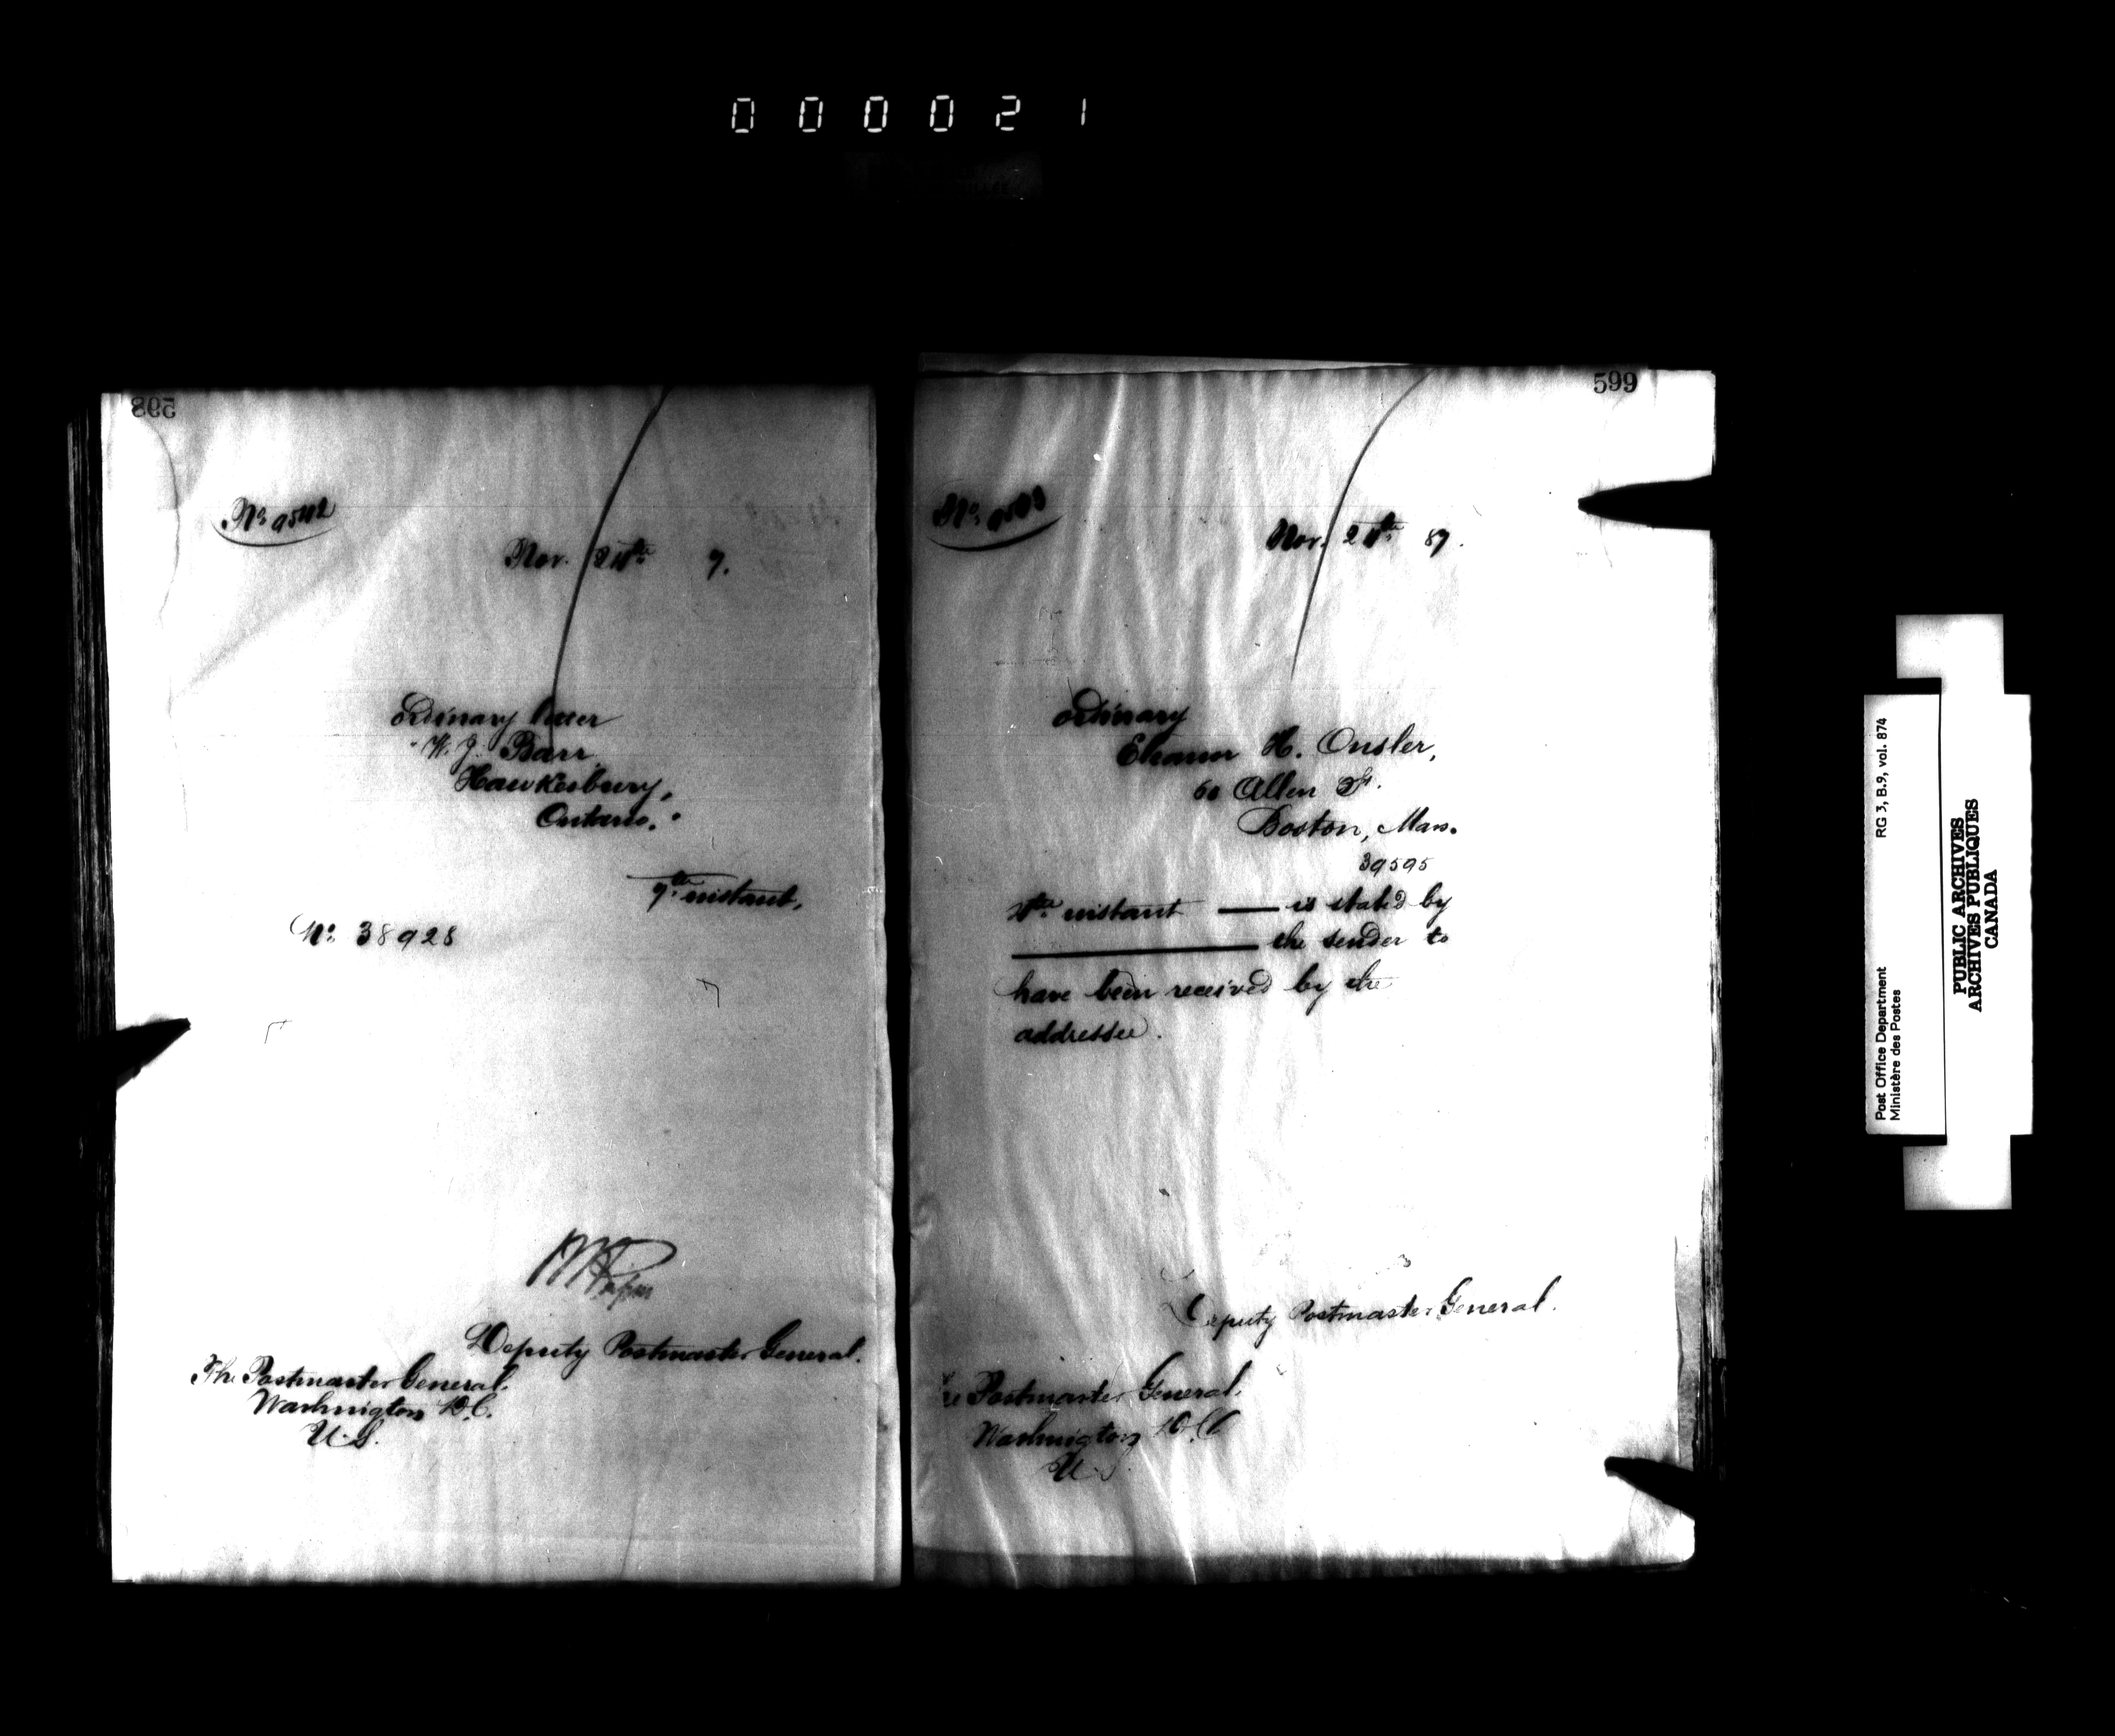 000021
598
No. 9542
Nov. 24th 7.
ordinary letter
"W. J. Barr,
Hawkesbury,
Ontario."
9th instant,
No. 38928
Deputy Postmaster General.
The Postmaster General,
Washington D.C.
U.S.
599
No.
Nov. 24th 87.
ordinary
Eleanor H. Onsler,
60 Allen St.
Boston, Mass.
39595
instant — is stated by
— the sender to
have been received by the
addressee.
Deputy Postmaster General.
Postmaster General,
Washington D.C.
U.S.
Post Office Department
Ministère des Postes
RG 3, B.9, vol. 874
PUBLIC ARCHIVES
ARCHIVES PUBLIQUES
CANADA